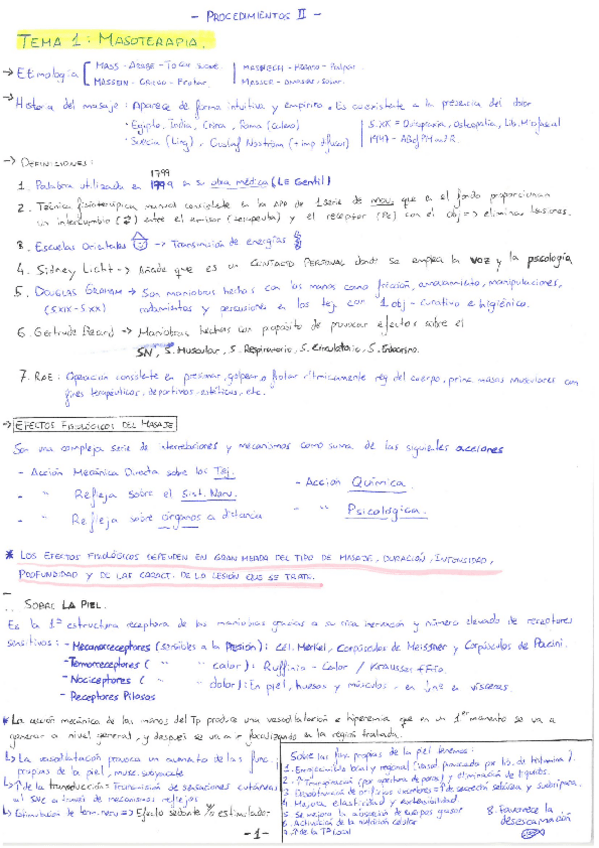 - PROCEDIMIENTOS II -
TEMA 1: MASOTERAPIA.
→ Etimología MASS - ÁRABE - Tocar suave. MASHECH - HEBREO - Palpar.
MASSEIN - GRIEGO - Frotar.
→ Historia del masaje: Aparece de forma intuitiva y empírica. Es coexistente a la presencia del dolor
· Egipto, India, China, Roma (Galeno) S.XX = Quiropraxia, Osteopatía, Lib. Miofascial
· Suecia (Ling), Gustaf Noström
→ DEFINICIONES:
1799
1. Palabra utilizada en en su obra médica (LE Gentil)
2. Técnica fisioterápica manual consistente en la de 1 serie de mov. que en el fondo proporcionan
un intercambio (⇄) entre el emisor (terapeuta) y el receptor (Pc) con el obj → eliminar lesiones.
3. Escuelas Orientales → Transmisión de energías
4. Sidney Licht → Añade que es un CONTACTO PERSONAL donde se emplea la VOZ y la psicología
5. DOUGLAS GRAHAM → Son maniobras hechas con las manos como fricción, amasamiento, manipulaciones,
(SXIX-SXX) rodamientos y percusiones en los tej. con 1 obj - curativo e higiénico.
6. Gertrude Beard → Maniobras hechas con propósito de provocar efectos sobre el
SN, S. Muscular, S. Respiratorio, S. Circulatorio, S. Endocrino.
7. RAE: Operación consistente en presionar, golpear o frotar rítmicamente reg del cuerpo, princ. masas musculares con
fines terapéuticos, deportivos-estéticos, etc.
→ EFECTOS FISIOLÓGICOS DEL MASAJE
Son una compleja serie de interrelaciones y mecanismos como suma de las siguientes acciones
- Acción Mecánica Directa sobre los Tej. - Acción Química.
- " Refleja sobre el Sist. Nerv. " " Psicológica.
- " Refleja sobre órganos a distancia
* LOS EFECTOS FISIOLÓGICOS DEPENDEN EN GRAN MEDIDA DEL TIPO DE MASAJE, DURACIÓN, INTENSIDAD,
PROFUNDIDAD Y DE LAS CARACT. DE LA LESIÓN QUE SE TRATE.
SOBRE LA PIEL.
Es la 1ª estructura receptora de las maniobras gracias a su rica inervación y número elevado de receptores
sensitivos: - Mecanorreceptores (sensibles a la Presión): Cel. Merkel, Corpúsculos de Meissner y Corpúsculos de Pacini.
- Termorreceptores ( " " calor): Ruffinio - Calor / Krausse: frío.
- Nociceptores ( " " dolor): En piel, huesos y músculos, en ↓nº en vísceras
- Receptores Pilosos
* La acción mecánica de las manos del Tp produce una vasodilatación e hiperemia que en un 1er momento se va a
generar a nivel general, y después se va a ir focalizando en la región tratada.
↳ La vasodilatación provoca un aumento de las func.
propias de la piel, musc. subyacente
↳ ↑ de la transducción = Transmisión de sensaciones cutáneas
al SNC a través de mecanismos reflejos
↳ Estimulación de term. nerv ⇒ Efecto sedante % estimulador
Sobre las func. propias de la piel tenemos:
1. Enrojecimiento local y regional (vasod provocada por lib. de histamina).
2. ↑ Transpiración (por apertura de poros) y eliminación de líquidos.
3. Desobstrucción de orificios = ↑ de secreción sebácea y sudorípara.
4. Mejora elasticidad y extensibilidad.
5. Se mejora la absorción de cuerpos grasos
6. Activación de la nutrición celular
7. ↑ de la Tª local
8. Favorece la
descamación
- 1 -